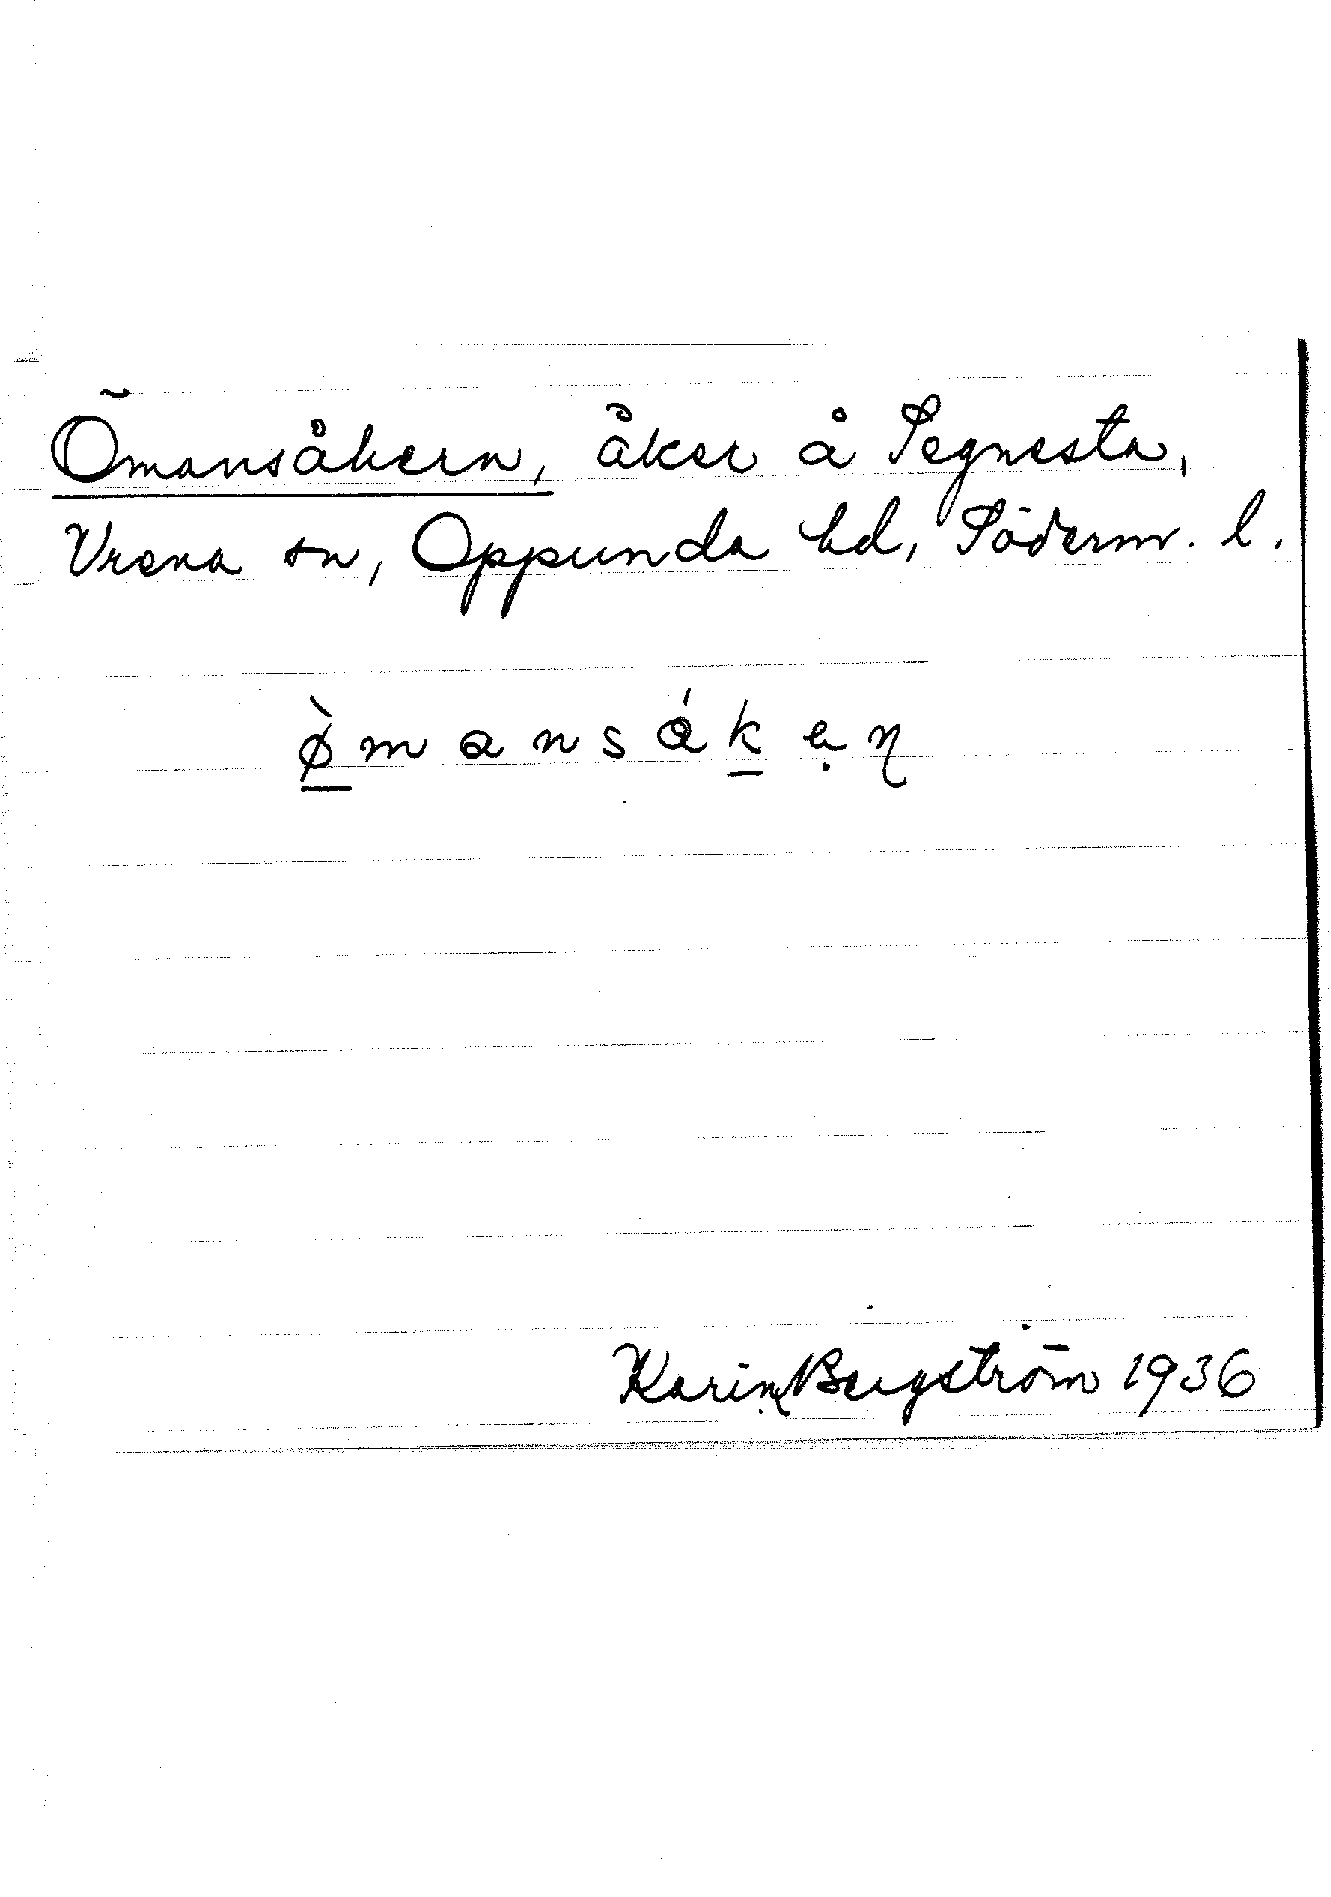 Ömansåkern, åker å Segnesta,
Vrena sn, Oppunda hd, Söderm. l.
ø̀mansákẹn̨
Karin Bergström 1936